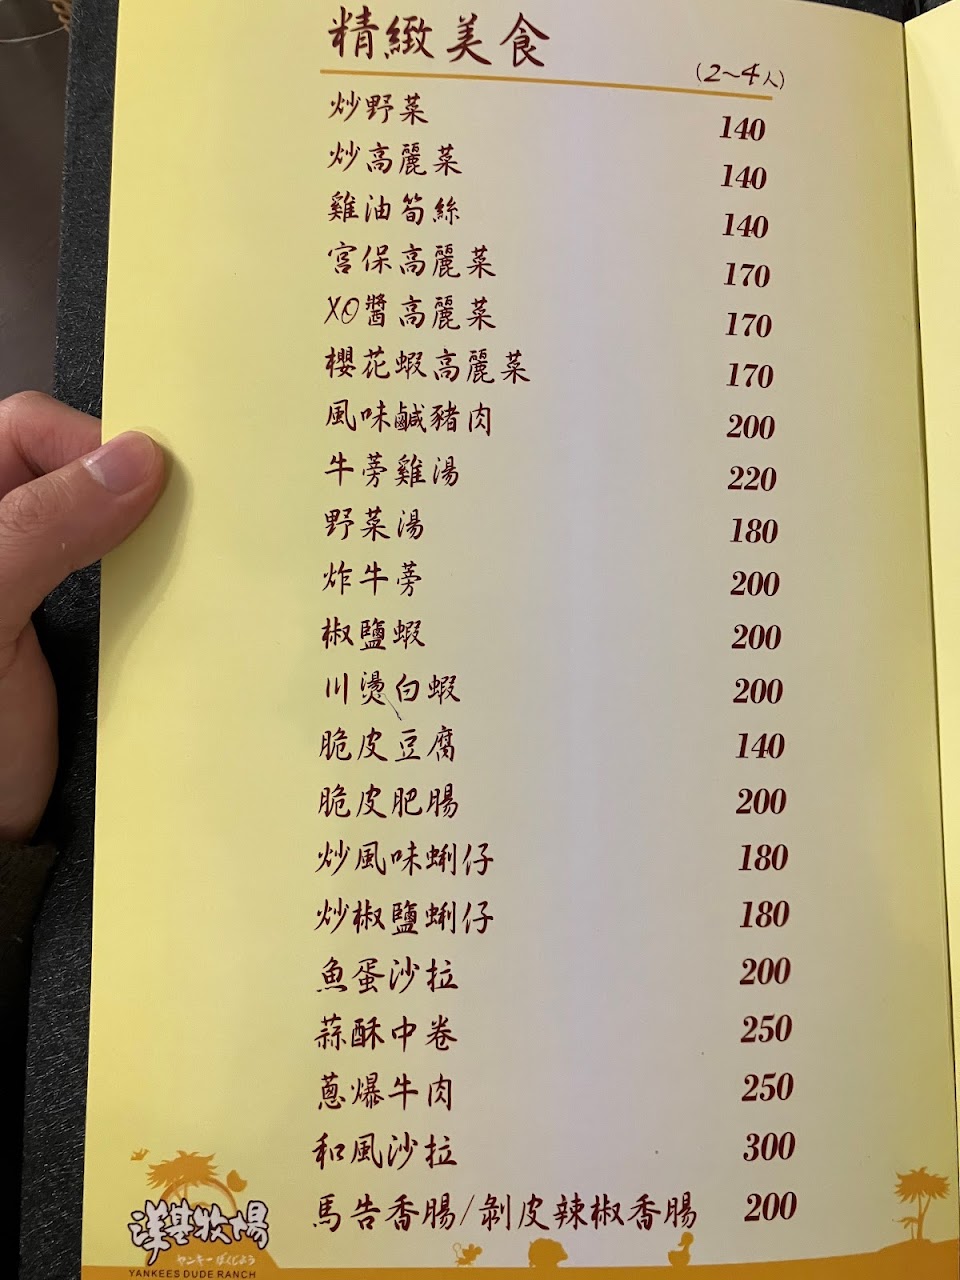 精緻美食
(2~4人)
炒野菜 140
炒高麗菜 140
雞油筍絲 140
宮保高麗菜 170
XO醬高麗菜 170
櫻花蝦高麗菜 170
風味鹹豬肉 200
牛蒡雞湯 220
野菜湯 180
炸牛蒡 200
椒鹽蝦 200
川燙白蝦 200
脆皮豆腐 140
脆皮肥腸 200
炒風味蜊仔 180
炒椒鹽蜊仔 180
魚蛋沙拉 200
蒜酥中卷 250
蔥爆牛肉 250
和風沙拉 300
馬告香腸/剝皮辣椒香腸 200
洋基牧場
ヤンキーぼくじょう
YANKEES DUDE RANCH